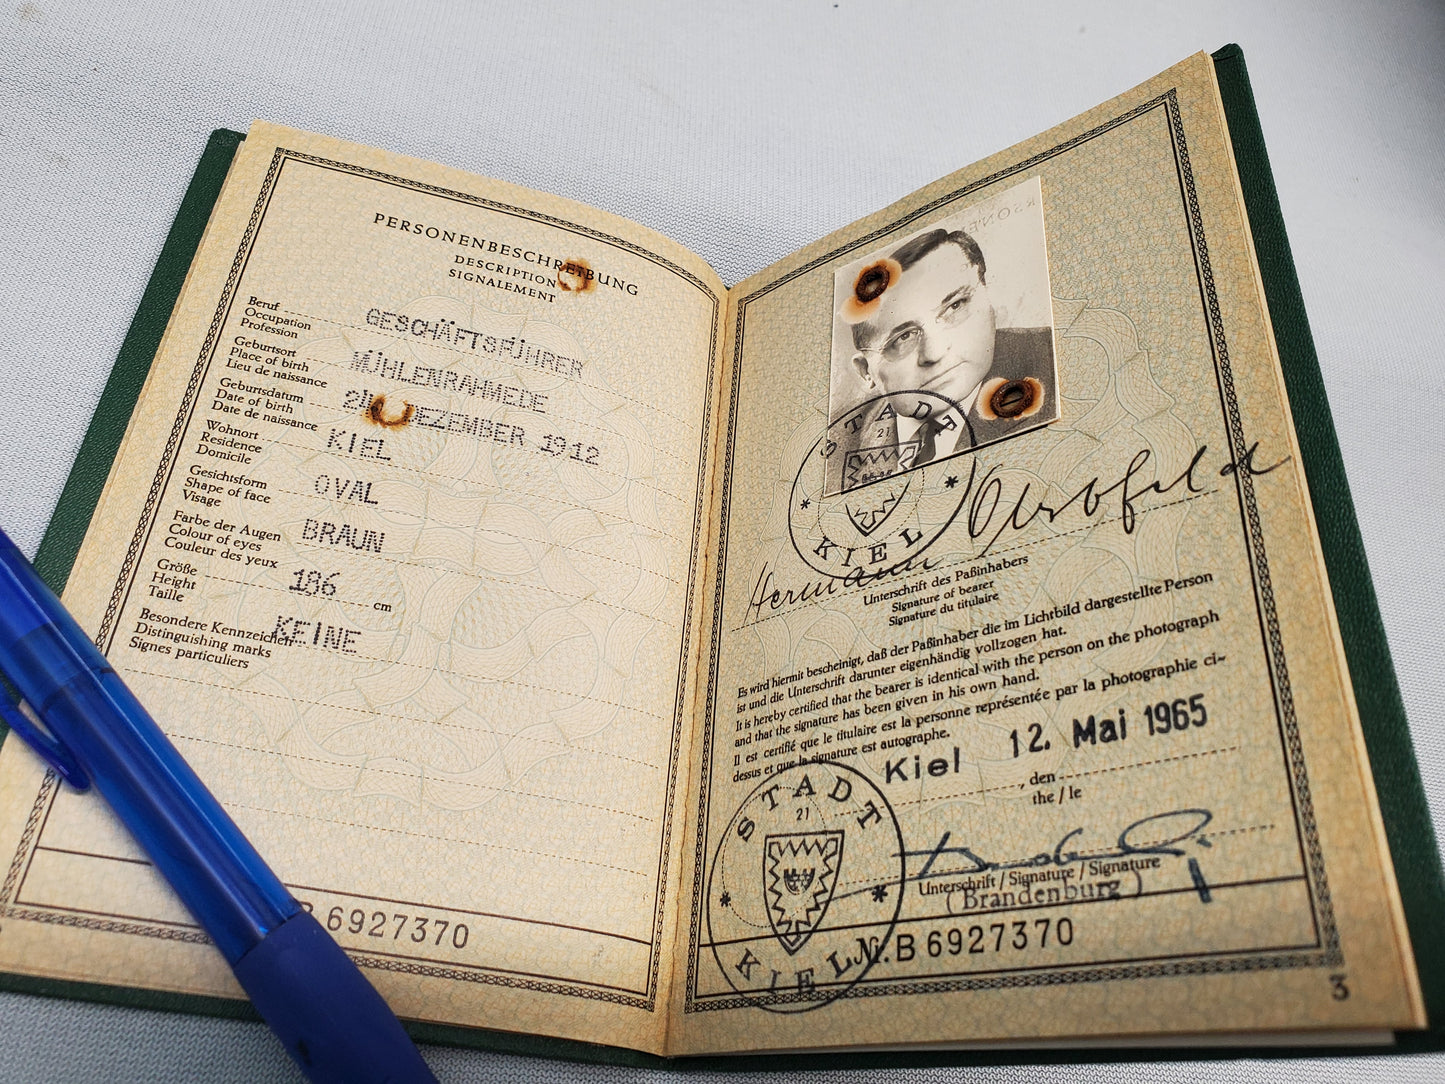 PERSONENBESCHREIBUNG
DESCRIPTION
SIGNALEMENT
Beruf
Occupation
Profession
GESCHÄFTSFÜHRER
Geburtsort
Place of birth
Lieu de naissance
MÜHLENRAHMEDE
Geburtsdatum
Date of birth
Date de naissance
DEZEMBER 1912
Wohnort
Residence
Domicile
KIEL
Gesichtsform
Shape of face
Visage
OVAL
Farbe der Augen
Colour of eyes
Couleur des yeux
BRAUN
Größe
Height
Taille
186 cm
Besondere Kennzeichen
Distinguishing marks
Signes particuliers
KEINE
B 6927370
STADT
21
KIEL
Hermann
Unterschrift des Paßinhabers
Signature of bearer
Signature du titulaire
Es wird hiermit bescheinigt, daß der Paßinhaber die im Lichtbild dargestellte Person
ist und die Unterschrift darunter eigenhändig vollzogen hat.
It is hereby certified that the bearer is identical with the person on the photograph
and that the signature has been given in his own hand.
Il est certifié que le titulaire est la personne représentée par la photographie ci-
dessus et que la signature est autographe.
Kiel, den 12. Mai 1965
the / le
STADT
21
KIEL
Unterschrift / Signature / Signature
(Brandenburg)
Nr. B 6927370
3